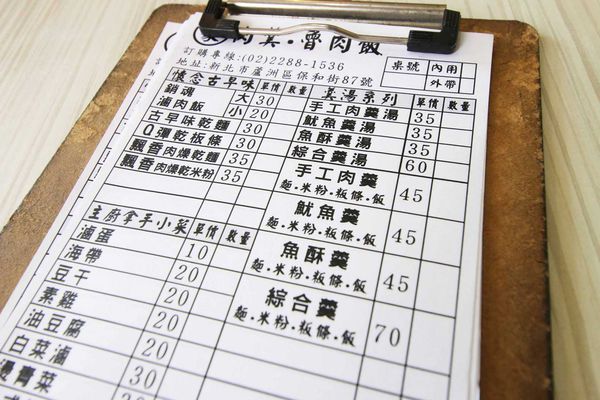 羹.魯肉飯
訂購專線:(02)2288-1536
地址:新北市蘆洲區保和街87號
桌號 內用
外帶
懷念古早味 單價 數量
銷魂 大 30
滷肉飯 小 20
古早味乾麵 30
Q彈乾板條 30
飄香肉燥乾麵 35
飄香肉燥乾米粉 35
主廚拿手小菜 單價 數量
滷蛋 10
海帶 20
豆干 20
素雞 20
油豆腐 20
白菜滷 30
邊膏菜 35
羹湯系列 單價 數量
手工肉羹湯 35
魷魚羹湯 35
魚酥羹湯 35
綜合羹湯 60
手工肉羹 45
麵.米粉.板條.飯
魷魚羹 45
麵.米粉.板條.飯
魚酥羹 45
麵.米粉.板條.飯
綜合羹 70
麵.米粉.板條.飯